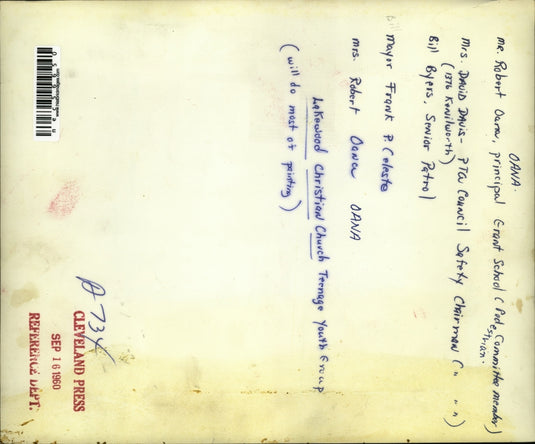 Mr. Robert Oana, principal Grant School (Pedestrian Committee member)
OANA.
Mrs. DAVID DAVIS - PTA Council Safety Chairman ( " " " )
(1376 Kenilworth)
Bill Byers, Senior Patrol
Bill
Mayor Frank P. Celeste
Mrs. Robert Oana OANA
Lakewood Christian Church Teenage Youth Group
(will do most of painting)
A734
CLEVELAND PRESS
SEP 16 1960
REFERENCE DEPT.